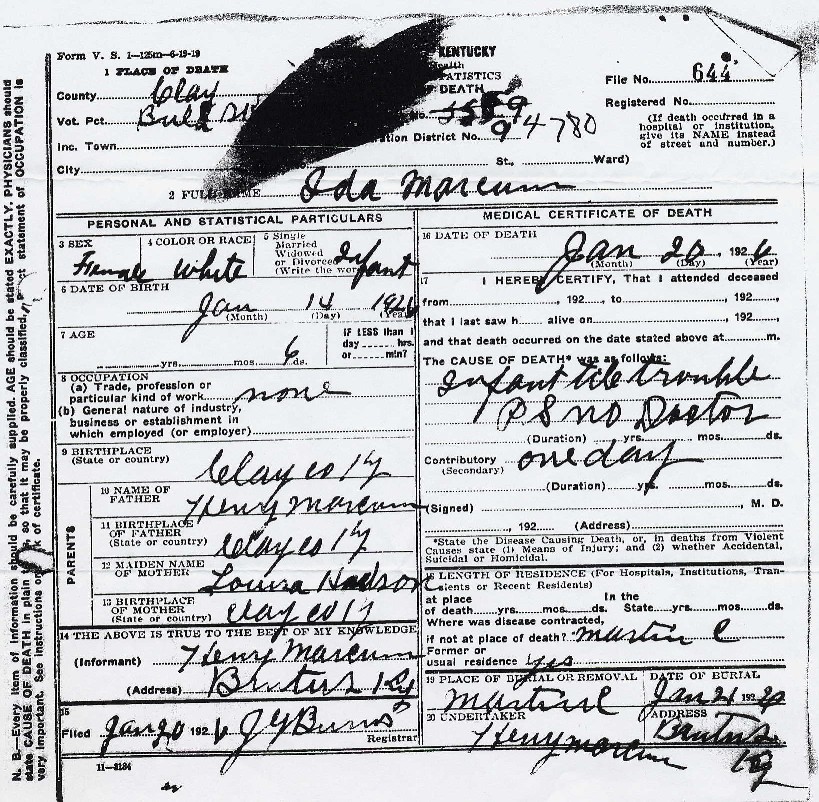 Form V. S. 1—125m—6-19-19
KENTUCKY
1 PLACE OF DEATH
County Clay
File No. 644
Vot. Pct. Bull
DEATH
Registered No.
Inc. Town
Registration District No. 4780
(If death occurred in a hospital or institution, give its NAME instead of street and number.)
City
St., Ward)
2 FULL NAME Ida Marcum
PERSONAL AND STATISTICAL PARTICULARS
3 SEX Female
4 COLOR OR RACE White
5 Single Married Widowed or Divorced (Write the word) Infant
6 DATE OF BIRTH
Jan 14 1926
(Month) (Day) (Year)
7 AGE
yrs. mos. 6 ds.
IF LESS than 1 day hrs. or min?
8 OCCUPATION
(a) Trade, profession or particular kind of work none
(b) General nature of industry, business or establishment in which employed (or employer)
9 BIRTHPLACE
(State or country) Clay co Ky
PARENTS
10 NAME OF FATHER Henry Marcum
11 BIRTHPLACE OF FATHER
(State or country) Clay co Ky
12 MAIDEN NAME OF MOTHER Louiza Hudson
13 BIRTHPLACE OF MOTHER
(State or country) Clay co Ky
14 THE ABOVE IS TRUE TO THE BEST OF MY KNOWLEDGE
(Informant) Henry Marcum
(Address) Brutus Ky
15
Filed Jan 20 1926 J Y Burns
Registrar
11—3184
MEDICAL CERTIFICATE OF DEATH
16 DATE OF DEATH
Jan 20 1926
(Month) (Day) (Year)
17 I HEREBY CERTIFY, That I attended deceased
from , 192 , to , 192 ,
that I last saw h alive on , 192 ,
and that death occurred on the date stated above at m.
The CAUSE OF DEATH* was as follows:
Infant tile trouble
P S no Doctor
(Duration) yrs. mos. ds.
Contributory one day
(Secondary)
(Duration) yrs. mos. ds.
(Signed) , M. D.
, 192 (Address)
*State the Disease Causing Death, or, in deaths from Violent Causes state (1) Means of Injury; and (2) whether Accidental, Suicidal or Homicidal.
18 LENGTH OF RESIDENCE (For Hospitals, Institutions, Transients or Recent Residents)
at place of death yrs. mos. ds. In the State yrs. mos. ds.
Where was disease contracted,
if not at place of death? Martin C
Former or
usual residence yes
19 PLACE OF BURIAL OR REMOVAL Martin C
DATE OF BURIAL Jan 21 192
20 UNDERTAKER Henry Marcum
ADDRESS Brutus Ky
N. B.—Every item of information should be carefully supplied. AGE should be stated EXACTLY. PHYSICIANS should
state CAUSE OF DEATH in plain so that it may be properly classified. statement of OCCUPATION is
very important. See instructions on of certificate.